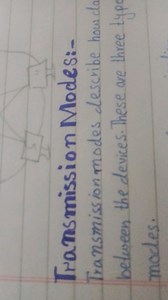 Transmission Modes:-
Transmission modes describe how da
between the devices. These are three type
modes.